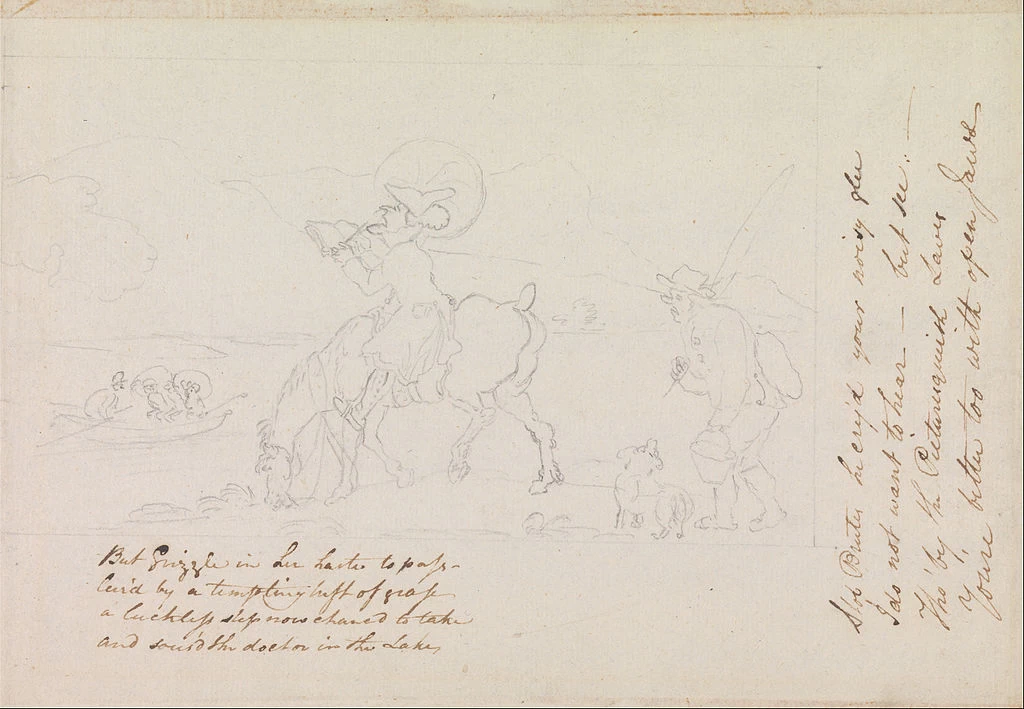 But Grizzle in her haste to pass-
lur'd by a tempting tuft of grass
a luckless slip now chanced to take
and sous'd the doctor in the Lake,
Stop Brutes he cry'd your noisy glee
I do not want to hear — but see. —
Tho' by the Picturesquish Laws
You're better too with open Jaws